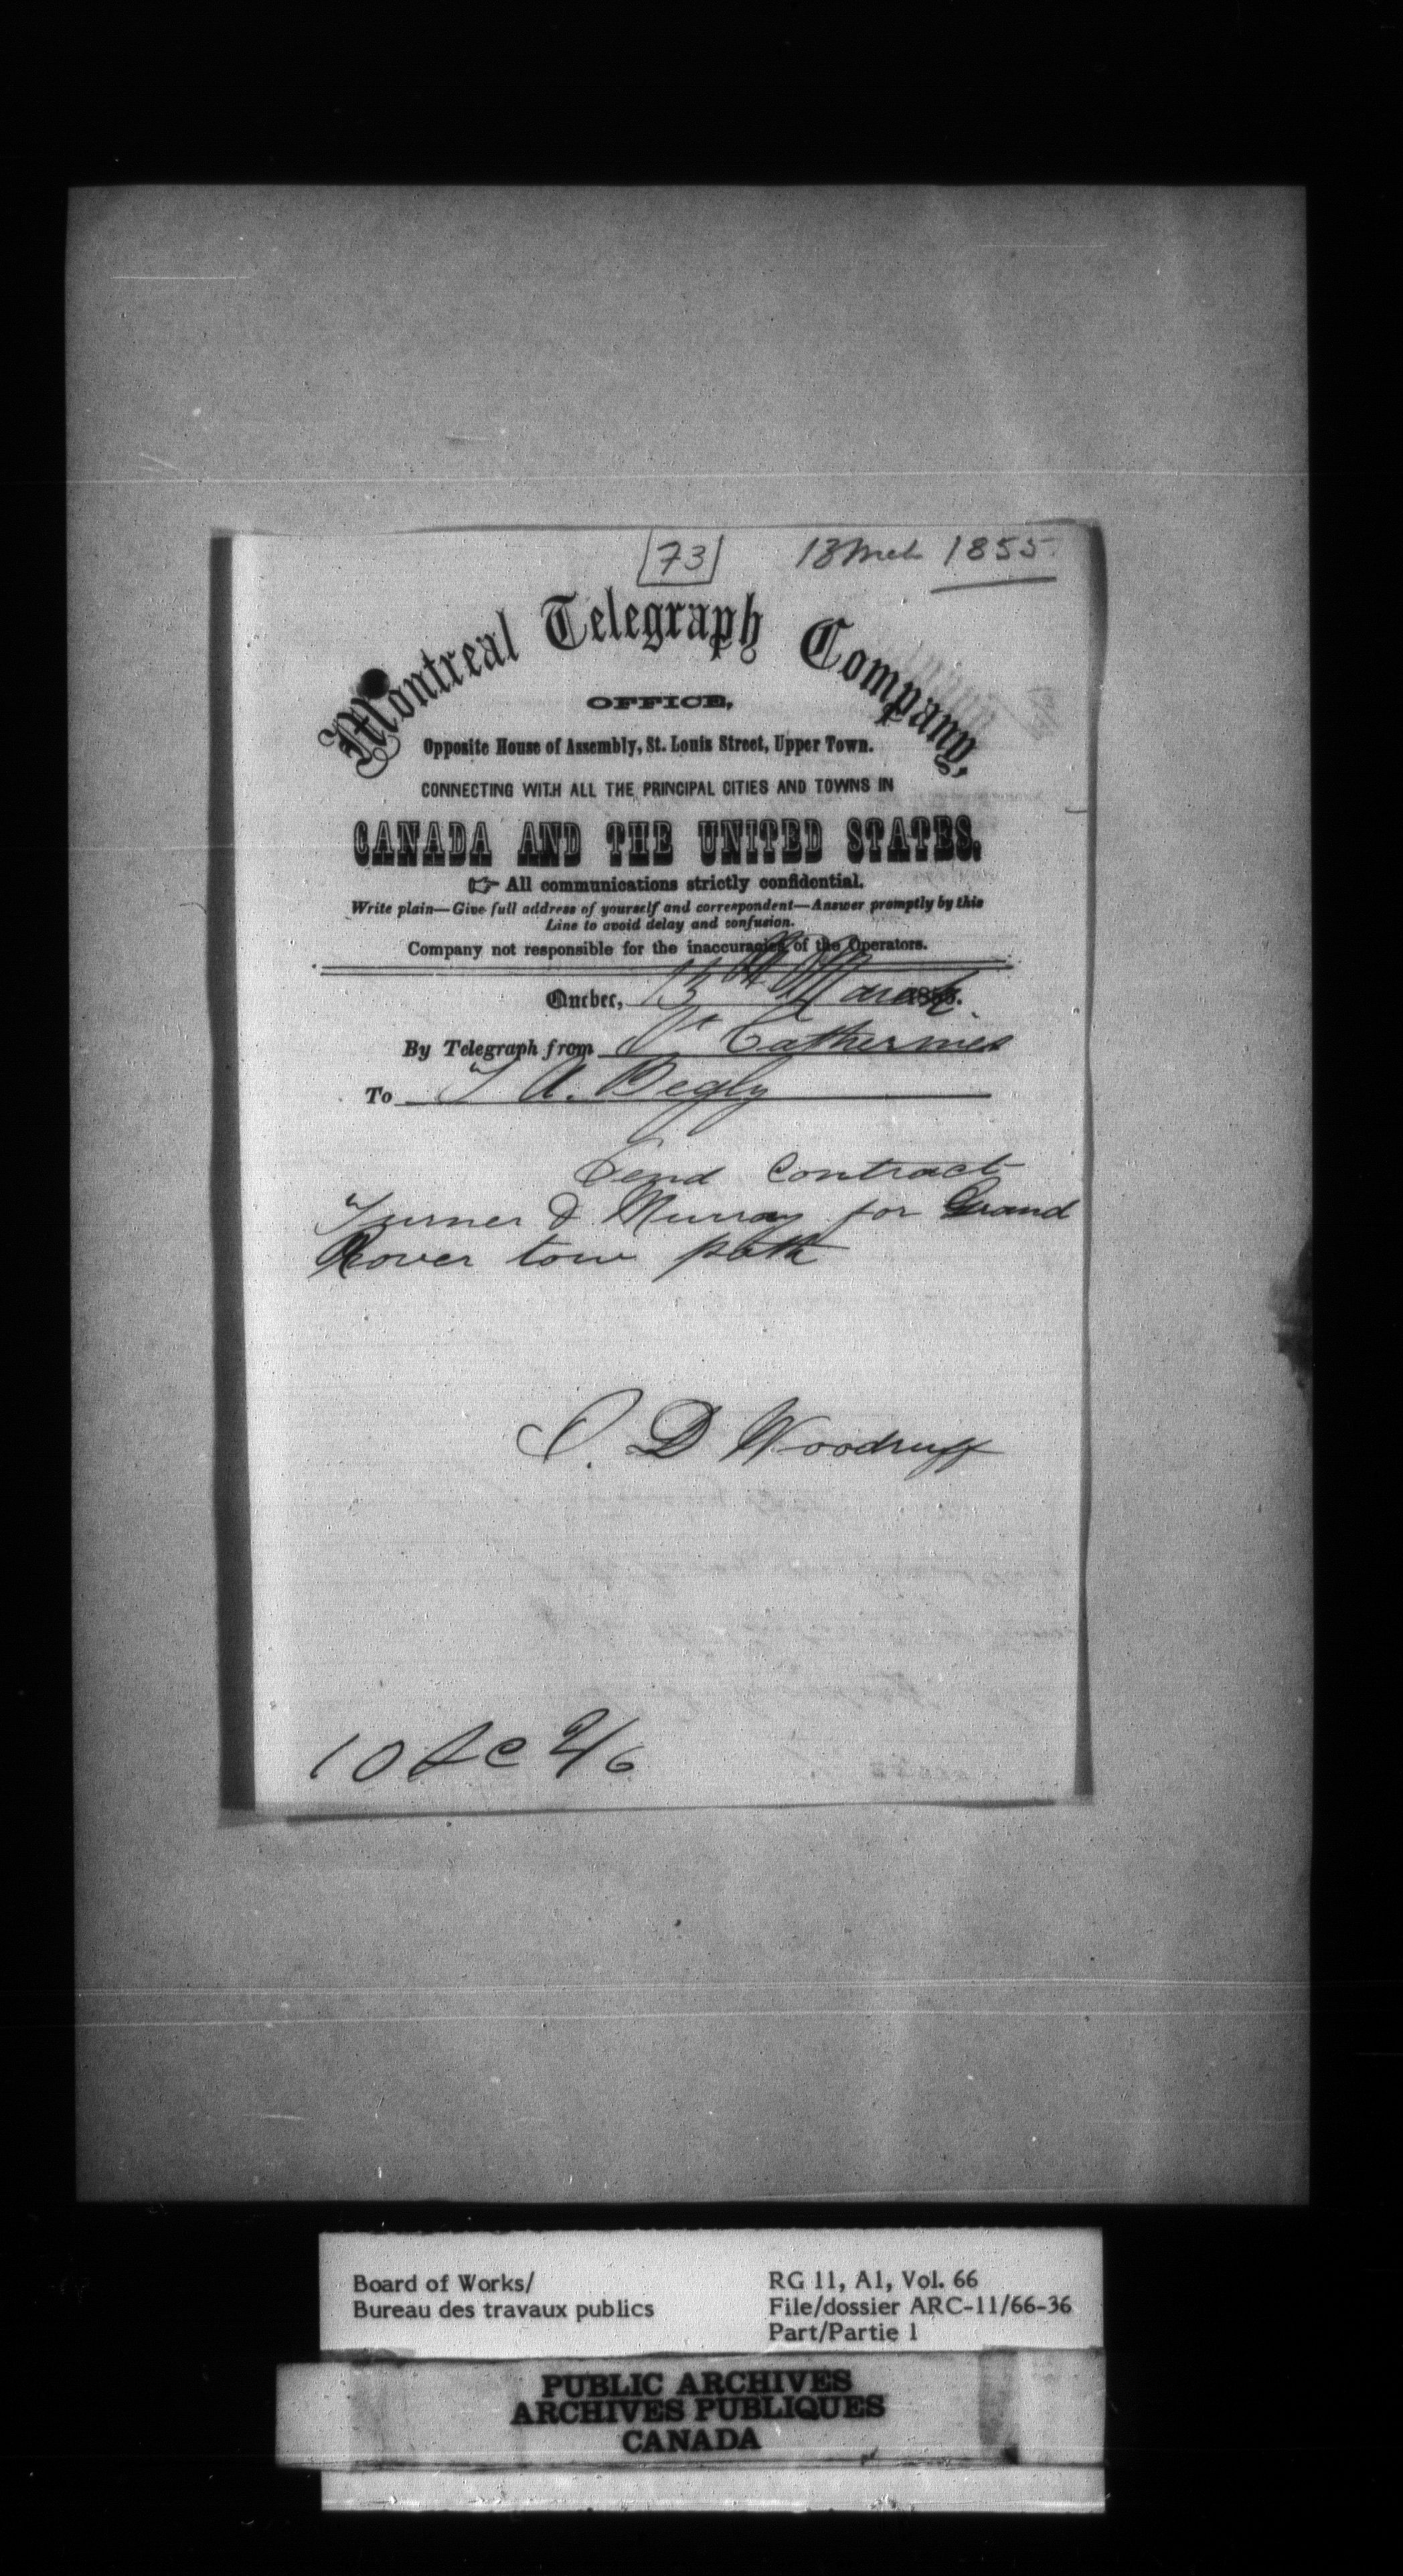 73
13 Mch 1855
Montreal Telegraph Company,
OFFICE,
Opposite House of Assembly, St. Louis Street, Upper Town.
CONNECTING WITH ALL THE PRINCIPAL CITIES AND TOWNS IN
CANADA AND THE UNITED STATES.
☞ All communications strictly confidential.
Write plain—Give full address of yourself and correspondent—Answer promptly by this
Line to avoid delay and confusion.
Company not responsible for the inaccuracies of the Operators.
Quebec, 13th March 185
By Telegraph from St Catherines
To T A. Begly
Send Contract
Turner & Murray for Grand
River tow path
S. D Woodruff
10 2/6
Board of Works/
Bureau des travaux publics
RG 11, A1, Vol. 66
File/dossier ARC-11/66-36
Part/Partie 1
PUBLIC ARCHIVES
ARCHIVES PUBLIQUES
CANADA